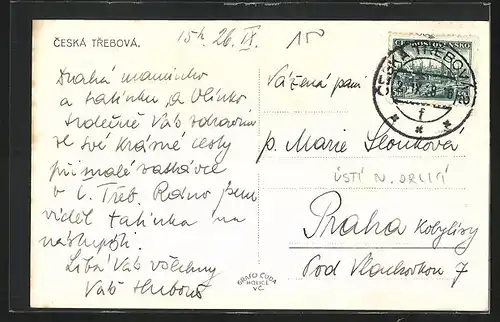 ČESKÁ TŘEBOVÁ.
15h. 26. IX.
150
Drahá maminko
a tatínku, a Olinko
srdečně Vás zdravím
ze své krásné cesty
při malé zastávce
v Č. Třeb. Ráno jsem
viděl tatínka na
nástupišti.
Líbá Vás všechny
Váš
Vážená paní
p. Marie
ÚSTÍ N. ORLICÍ
Praha Kobylisy
Pod Vlachovkou 7
ČESKOSLOVENSKO
ČESKÁ TŘEBOVÁ 2
f
GRAFO ČUDA
HOLICE
V.Č.